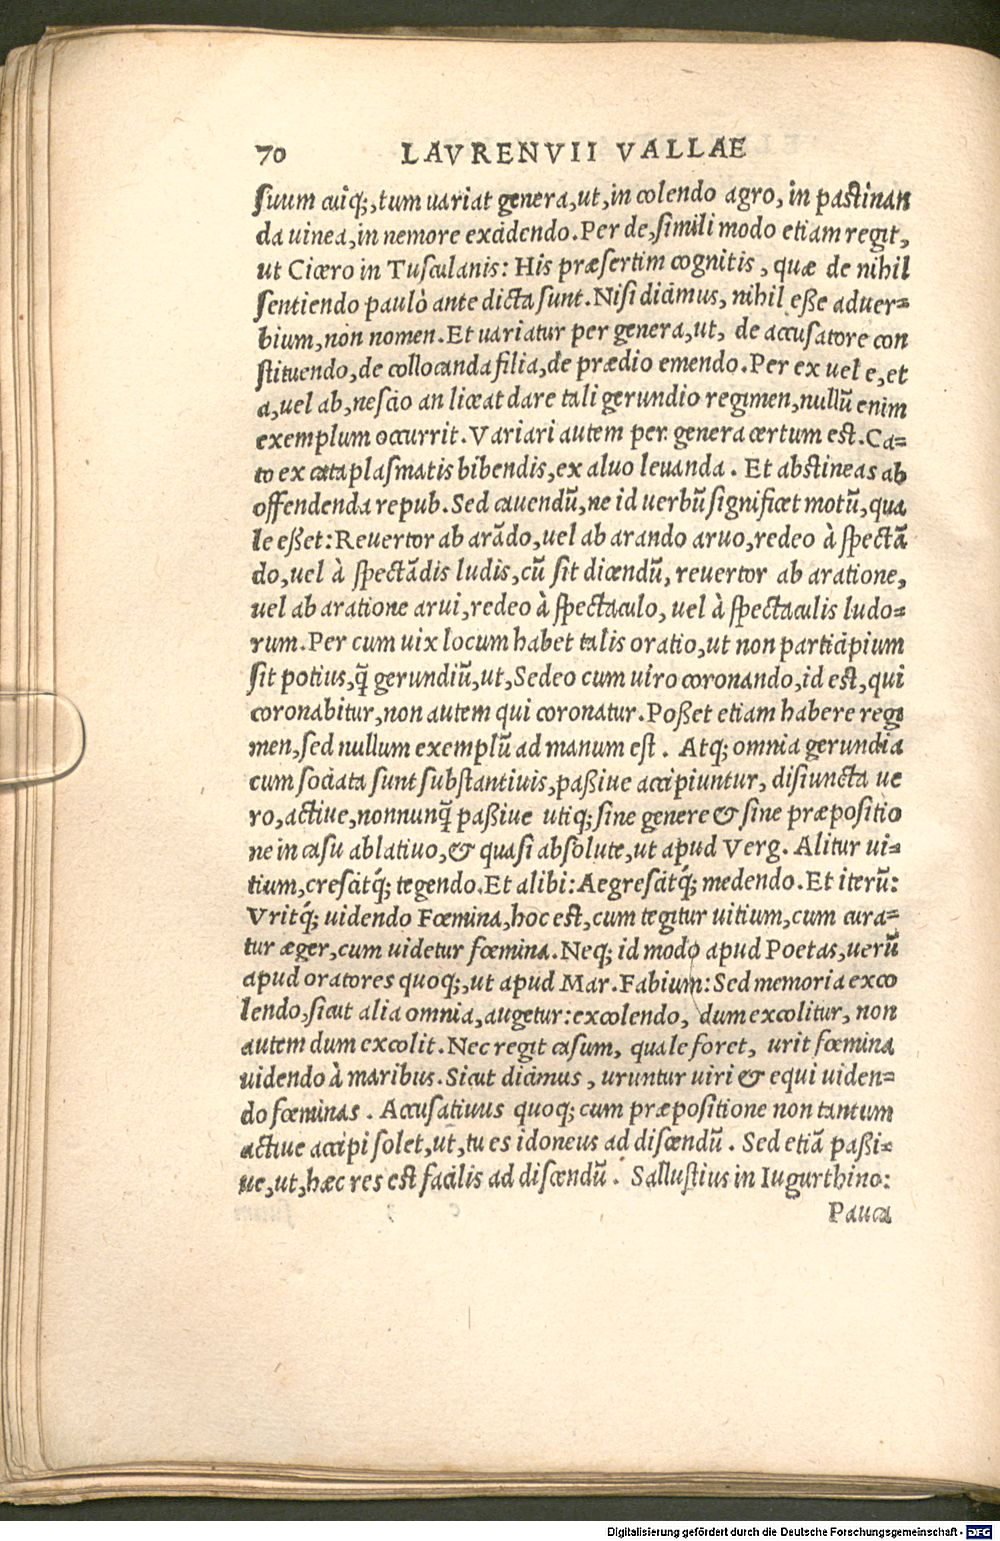 70 LAVRENVII VALLAE
ſuum cuiq;, tum uariat genera, ut, in colendo agro, in paſtinan
da uinea, in nemore excidendo. Per de, ſimili modo etiam regit,
ut Cicero in Tuſculanis: His præſertim cognitis, quæ de nihil
ſentiendo paulò ante dicta ſunt. Niſi dicimus, nihil eſſe aduer=
bium, non nomen. Et uariatur per genera, ut, de accuſatore con
ſtituendo, de collocanda filia, de prædio emendo. Per ex uel e, et
a, uel ab, neſcio an liceat dare tali gerundio regimen, nullũ enim
exemplum occurrit. Variari autem per genera certum eſt. Ca=
to ex cataplaſmatis bibendis, ex aluo leuanda. Et abſtineas ab
offendenda repub. Sed cauendũ, ne id uerbũ ſignificet motũ, qua
le eßet: Reuertor ab arãdo, uel ab arando aruo, redeo à ſpectã
do, uel à ſpectãdis ludis, cũ ſit dicendũ, reuertor ab aratione,
uel ab aratione arui, redeo à ſpectaculo, uel à ſpectaculis ludo=
rum. Per cum uix locum habet talis oratio, ut non participium
ſit potius, q̃ gerundiũ, ut, Sedeo cum uiro coronando, id eſt, qui
coronabitur, non autem qui coronatur. Poßet etiam habere regi
men, ſed nullum exemplũ ad manum eſt. Atq; omnia gerundia
cum ſociata ſunt ſubſtantiuis, paßiue accipiuntur, diſiuncta ue
ro, actiue, nonnunq̃ paßiue utiq; ſine genere & ſine præpoſitio
ne in caſu ablatiuo, & quaſi abſolute, ut apud Verg. Alitur ui=
tium, creſcitq́; tegendo. Et alibi: Aegreſcitq́; medendo. Et iterũ:
Vritq́; uidendo Fœmina, hoc eſt, cum tegitur uitium, cum cura=
tur æger, cum uidetur fœmina. Neq; id modo apud Poetas, uerũ
apud oratores quoq;, ut apud Mar. Fabium: Sed memoria exco
lendo, ſicut alia omnia, augetur: excolendo, dum excolitur, non
autem dum excolit. Nec regit caſum, quale foret, urit fœmina
uidendo à maribus. Sicut dicimus, uruntur uiri & equi uiden=
do fœminas. Accuſatiuus quoq; cum præpoſitione non tantum
actiue accipi ſolet, ut, tu es idoneus ad diſcendũ. Sed etiã paßi=
ue, ut, hæc res eſt facilis ad diſcendũ. Salluſtius in Iugurthino:
Pauca
Digitalisierung gefördert durch die Deutsche Forschungsgemeinschaft - DFG